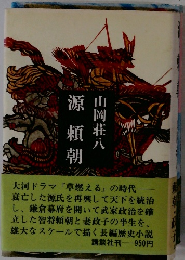 山岡荘八
源頼朝
大河ドラマ「草燃える」の時代―
衰亡した源氏を再興して天下を統治
し、鎌倉幕府を開いて武家政治を確
立した智将頼朝と妻政子の半生を、
雄大なスケールで描く長編歴史小説
講談社刊――950円